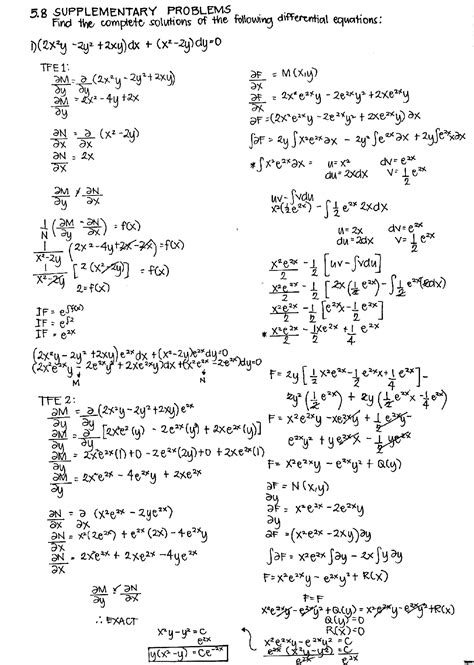 5.8 SUPPLEMENTARY PROBLEMS
Find the complete solutions of the following differential equations:
1) (2x²y - 2y² + 2xy)dx + (x² - 2y)dy = 0
TFE 1:
∂M/∂y = ∂/∂y (2x²y - 2y² + 2xy)
∂M/∂y = 2x² - 4y + 2x
∂N/∂x = ∂/∂x (x² - 2y)
∂N/∂x = 2x
∂M/∂y ≠ ∂N/∂x
1/N (∂M/∂y - ∂N/∂x) = f(x)
1/(x² - 2y) (2x² - 4y + 2x - 2x) = f(x)
1/(x² - 2y) [2(x² - 2y)] = f(x)
2 = f(x)
IF = e^∫f(x)
IF = e^∫2
IF = e^2x
(2x²y - 2y² + 2xy)e^2x dx + (x² - 2y)e^2x dy = 0
(2x²e^2x y - 2e^2x y² + 2xe^2x y)dx + (x²e^2x - 2e^2x y)dy = 0
M N
TFE 2:
∂M/∂y = ∂/∂y (2x²y - 2y² + 2xy)e^2x
∂M/∂y = ∂/∂y [2x²e^2x (y) - 2e^2x (y²) + 2xe^2x (y)]
∂M/∂y = 2x²e^2x (1) + 0 - 2e^2x (2y) + 0 + 2xe^2x (1)
∂M/∂y = 2x²e^2x - 4e^2x y + 2xe^2x
∂N/∂x = ∂/∂x (x²e^2x - 2ye^2x)
∂N/∂x = x²(2e^2x) + e^2x (2x) - 4e^2x y
∂N/∂x = 2x²e^2x + 2xe^2x - 4ye^2x
∂M/∂y = ∂N/∂x
∴ EXACT
∂F/∂x = M(x,y)
∂F/∂x = 2x²e^2x y - 2e^2x y² + 2xe^2x y
∂F = (2x²e^2x y - 2e^2x y² + 2xe^2x y) ∂x
∫∂F = 2y ∫x²e^2x ∂x - 2y² ∫e^2x ∂x + 2y ∫e^2x x ∂x
* ∫x²e^2x ∂x = u = x² dv = e^2x
du = 2xdx v = 1/2 e^2x
uv - ∫vdu
x²(1/2 e^2x) - ∫1/2 e^2x 2xdx
u = 2x dv = e^2x
du = 2dx v = 1/2 e^2x
x²e^2x/2 - 1/2 [uv - ∫vdu]
x²e^2x/2 - 1/2 [2x(1/2 e^2x) - ∫1/2 e^2x (2dx)]
x²e^2x/2 - 1/2 [e^2x x - 1/2 e^2x]
* x²e^2x/2 - 1/2 xe^2x + 1/4 e^2x
F = 2y [1/2 x²e^2x - 1/2 e^2x x + 1/4 e^2x] -
2y² (1/2 e^2x) + 2y (1/2 e^2x x - 1/4 e^2x)
F = x²e^2x y - xe^2x y + 1/2 e^2x y -
e^2x y² + y e^2x x - 1/2 ye^2x
F = x²e^2x y - e^2x y² + Q(y)
∂F/∂y = N(x,y)
∂F/∂y = x²e^2x - 2e^2x y
∂F = (x²e^2x - 2xy) ∂y
∫∂F = x²e^2x ∫∂y - 2x ∫y ∂y
F = x²e^2x y - e^2x y² + R(x)
F = F
x²e^2x y - e^2x y² + Q(y) = x²e^2x y - e^2x y² + R(x)
Q(y) = 0
R(x) = 0
x²e^2x y - e^2x y² = C
e^2x (x²y - y²)/e^2x = C/e^2x
x²y - y² = C/e^2x
y(x² - y) = Ce^-2x